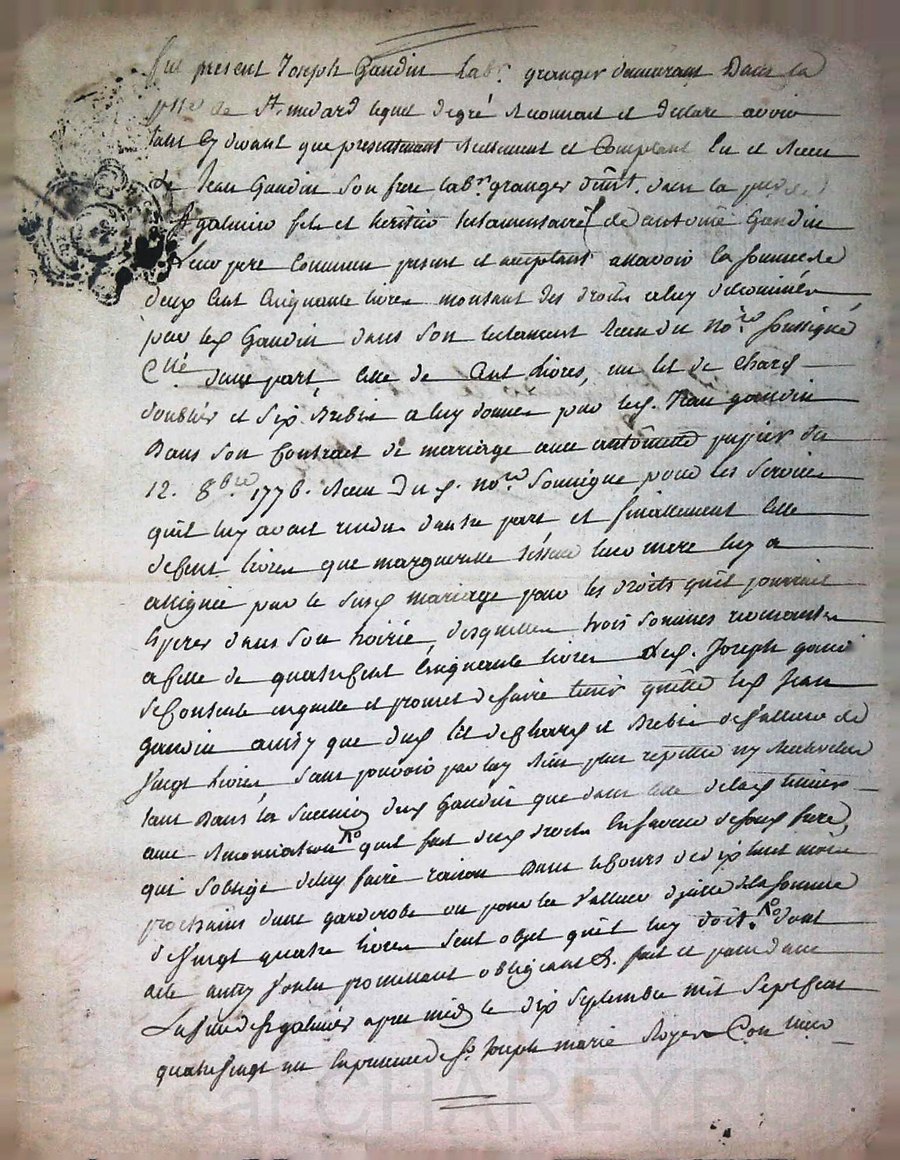 fut present Joseph Gaudin lab.r granger demeurant Dans la
psse de St. medard lequel de gré reconnait et declare avoir
tant cy devant que presentement reellement et Comptant Eu et Receu
de Jean Gaudin son frere lab.r granger dmt. dans la psse de
St galmier fils et heritier testamentaire de antoine Gaudin
Leur pere Commun present et acceptant assavoir la somme de
deux Cent Cinquante livres montant des droits a luy
par led Gaudin dans son testament Receu du No.re soussigné
d'une part, Celle de Cent Livres, un lit de Chard
doublier et Six Brebis a luy donnes par led. Jean gaudin
Dans son Contract de mariage avec antoinette pupier du
12. 8bre 1778. Receu Du d. No.re Soussigné pour les Services
quil luy avait rendu d'autre part et finallement Celle
de Cent livres que marguerite leur mere luy a
assignée par le susd mariage pour les droits quil pourrait
Esperer dans Son hoirie, desquelles trois Sommes revenantes
a Celle de quatre Cent Cinquante livres Led. Joseph gaudin
se Contente en quitte et promet de faire tenir quitte led Jean
gaudin ainsy que dud lit de Chard et Brebis de Valleur de
Vingt Livres, Sans pouvoir par luy Rien plus repetter ny Rechercher
tant Dans la Succession dud Gaudin que dans Celle de lad
avec Renonciation No quil fait dud droits En faveur de sond frere,
qui s'oblige de luy faire raison Dans le Cours de dix huit mois
prochains d'une garderobe ou pour la Valleur d'icelle de la somme
de Vingt quatre livres Seul objet qu'il luy doit. No dont
acte ainsy Voulu promettant obligeant &. fait et passé dans
St galmier apres midy le dix Septembre mil Sept Cent
quatre Vingt un En presence de Sr. Joseph marie Royer
Pascal CHAREYRON